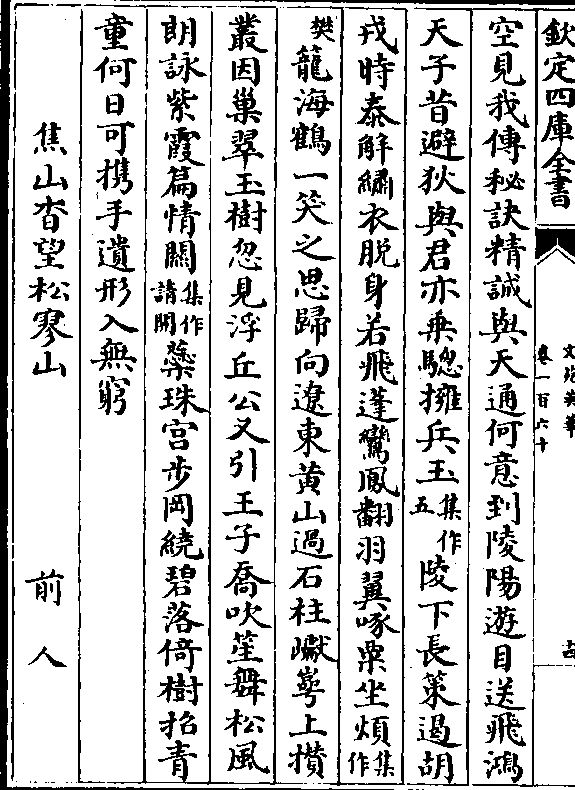 欽定四庫全書
文苑英華
卷一百六十
古
空見我傳秘訣精誠與天通何意到陵陽遊目送飛鴻
天子昔避狄與君亦乗驄擁兵玉集作五陵下長策遏胡
戎時泰解繡衣脱身若飛蓬鸞鳳翻羽翼啄粟坐煩集作
樊籠海鶴一笑之思歸向遼東黄山過石柱巘崿上攢
叢因巢翠玉樹忽見浮丘公又引王子喬吹笙舞松風
朗詠紫霞篇情關集作請開蘂珠宫步岡繞碧落倚樹招青
童何日可携手遺形入無窮
焦山杳望松寥山
前人